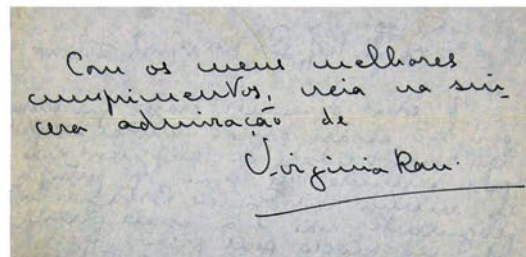 Com os meus melhores
cumprimentos, creia na sin-
cera admiração de
Virginia Rau.